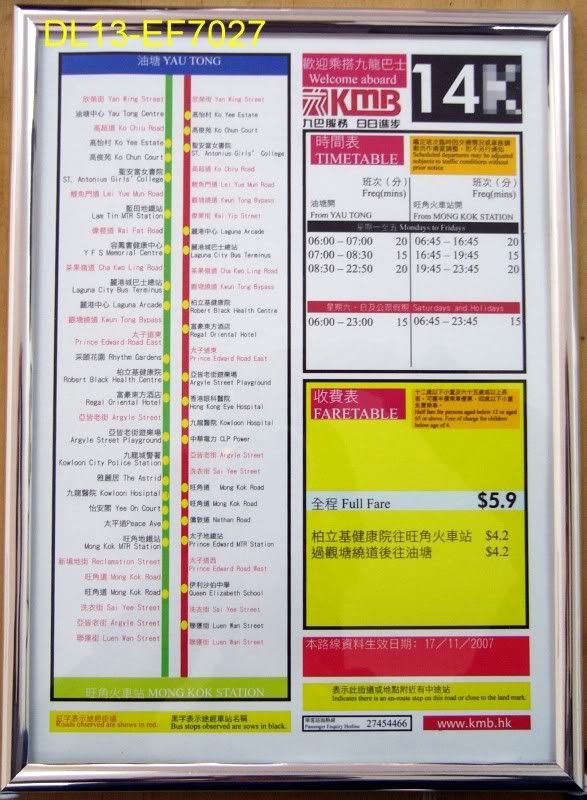 DL13-EF7027
油塘 YAU TONG
欣榮街 Yan Wing Street
油塘中心 Yau Tong Centre
高超道 Ko Chiu Road
高怡村 Ko Yee Estate
高俊苑 Ko Chun Court
聖安當女書院
ST. Antonius Girls' College
鯉魚門道 Lei Yue Mun Road
藍田地鐵站
Lam Tin MTR Station
偉發道 Wai Fat Road
容鳳書健康中心
Y F S Memorial Centre
茶果嶺道 Cha Kwo Ling Road
麗港城巴士總站
Laguna City Bus Terminus
麗港中心 Laguna Arcade
觀塘繞道 Kwun Tong Bypass
太子道東
Prince Edward Road East
采頤花園 Rhythm Gardens
柏立基健康院
Robert Black Health Centre
富豪東方酒店
Regal Oriental Hotel
亞皆老街 Argyle Street
亞皆老街遊樂場
Argyle Street Playground
九龍城警署
Kowloon City Police Station
雅麗居 The Astrid
九龍醫院 Kowloon Hosiptal
怡安閣 Yee On Court
太平道Peace Ave
旺角地鐵站
Mong Kok MTR Station
新填地街 Reclamation Street
旺角道 Mong Kok Road
旺角道 Mong Kok Road
洗衣街 Sai Yee Street
亞皆老街 Argyle Street
聯運街 Luen Wan Street
欣榮街 Yan Wing Street
高怡村 Ko Yee Estate
高俊苑 Ko Chun Court
聖安當女書院
ST. Antonius Girls' College
高超道 Ko Chiu Road
鯉魚門道 Lei Yue Mun Road
觀塘繞道 Kwun Tong Bypass
偉業街 Wai Yip Street
麗港中心 Laguna Arcade
麗港城巴士總站
Laguna City Bus Terminus
茶果嶺道 Cha Kwo Ling Road
觀塘繞道 Kwun Tong Bypass
柏立基健康院
Robert Black Health Centre
富豪東方酒店
Regal Oriental Hotel
太子道東
Prince Edward Road East
亞皆老街遊樂場
Argyle Street Playground
香港眼科醫院
Hong Kong Eye Hospital
九龍醫院 Kowloon Hospital
中華電力 CLP Power
亞皆老街 Argyle Street
洗衣街 Sai Yee Street
旺角道 Mong Kok Road
旺角道 Mong Kok Road
彌敦道 Nathan Road
太子地鐵站
Prince Edward MTR Station
太子道西
Prince Edward Road West
伊利沙伯中學
Queen Elizabeth School
洗衣街 Sai Yee Street
聯運街 Luen Wan Street
聯運街 Luen Wan Street
旺角火車站 MONG KOK STATION
紅字表示途經街道
Roads observed are shown in red.
黑字表示途經車站名稱
Bus stops observed are sows in black.
歡迎乘搭九龍巴士
Welcome aboard
KMB
九巴服務 日日進步
14
時間表
TIMETABLE
Scheduled departures may be adjusted
subject to traffic conditions without
prior notice
班次（分）
Freq(mins)
油塘開
From YAU TONG
班次（分）
Freq(mins)
旺角火車站開
From MONG KOK STATION
星期一至五 Mondays to Fridays
06:00 – 07:00 20 06:45 – 16:45 20
07:00 – 08:30 15 16:45 – 19:45 15
08:30 – 22:50 20 19:45 – 23:45 20
星期六、日及公眾假期 Saturdays and Holidays
06:00 – 23:00 15 06:45 – 23:45 15
收費表
FARETABLE
十二歲以下小童及六十五歲或以上長
者，可獲半價乘車優惠，四歲以下小童
免費乘車。
Half fare for persons aged below 12 or aged
65 or above. Free of charge for children
below age of 4.
全程 Full Fare $5.9
柏立基健康院往旺角火車站 $4.2
過觀塘繞道後往油塘 $4.2
本路線資料生效日期: 17／11／2007
表示此街道或地點附近有中途站
Indicates there is an en-route stop on this road or close to the land mark.
乘客諮詢熱線
Passenger Enquiry Hotline
27454466
www.kmb.hk